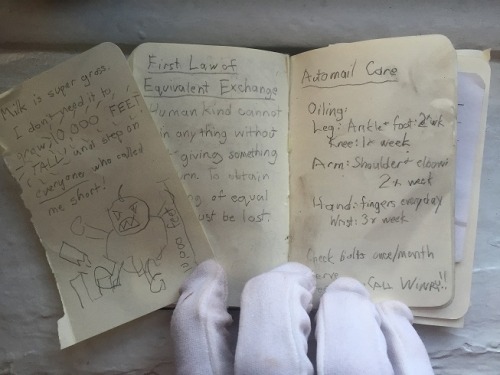 Milk is super gross.
I don't need it to
grow 10,000 FEET
TALL! and step on
everyone who called
me short!
First Law of
Equivalent Exchange
Human kind cannot
in anything without
giving something
To obtain
of equal
ust be lost.
Automail Care
Oiling:
Leg: Ankle + foot: 2x wk
Knee: 1x week
Arm: Shoulder + elbow
2x week
Hand: fingers everyday
Wrist: 3x week
Check Bolts once/month
CALL WINRY!!